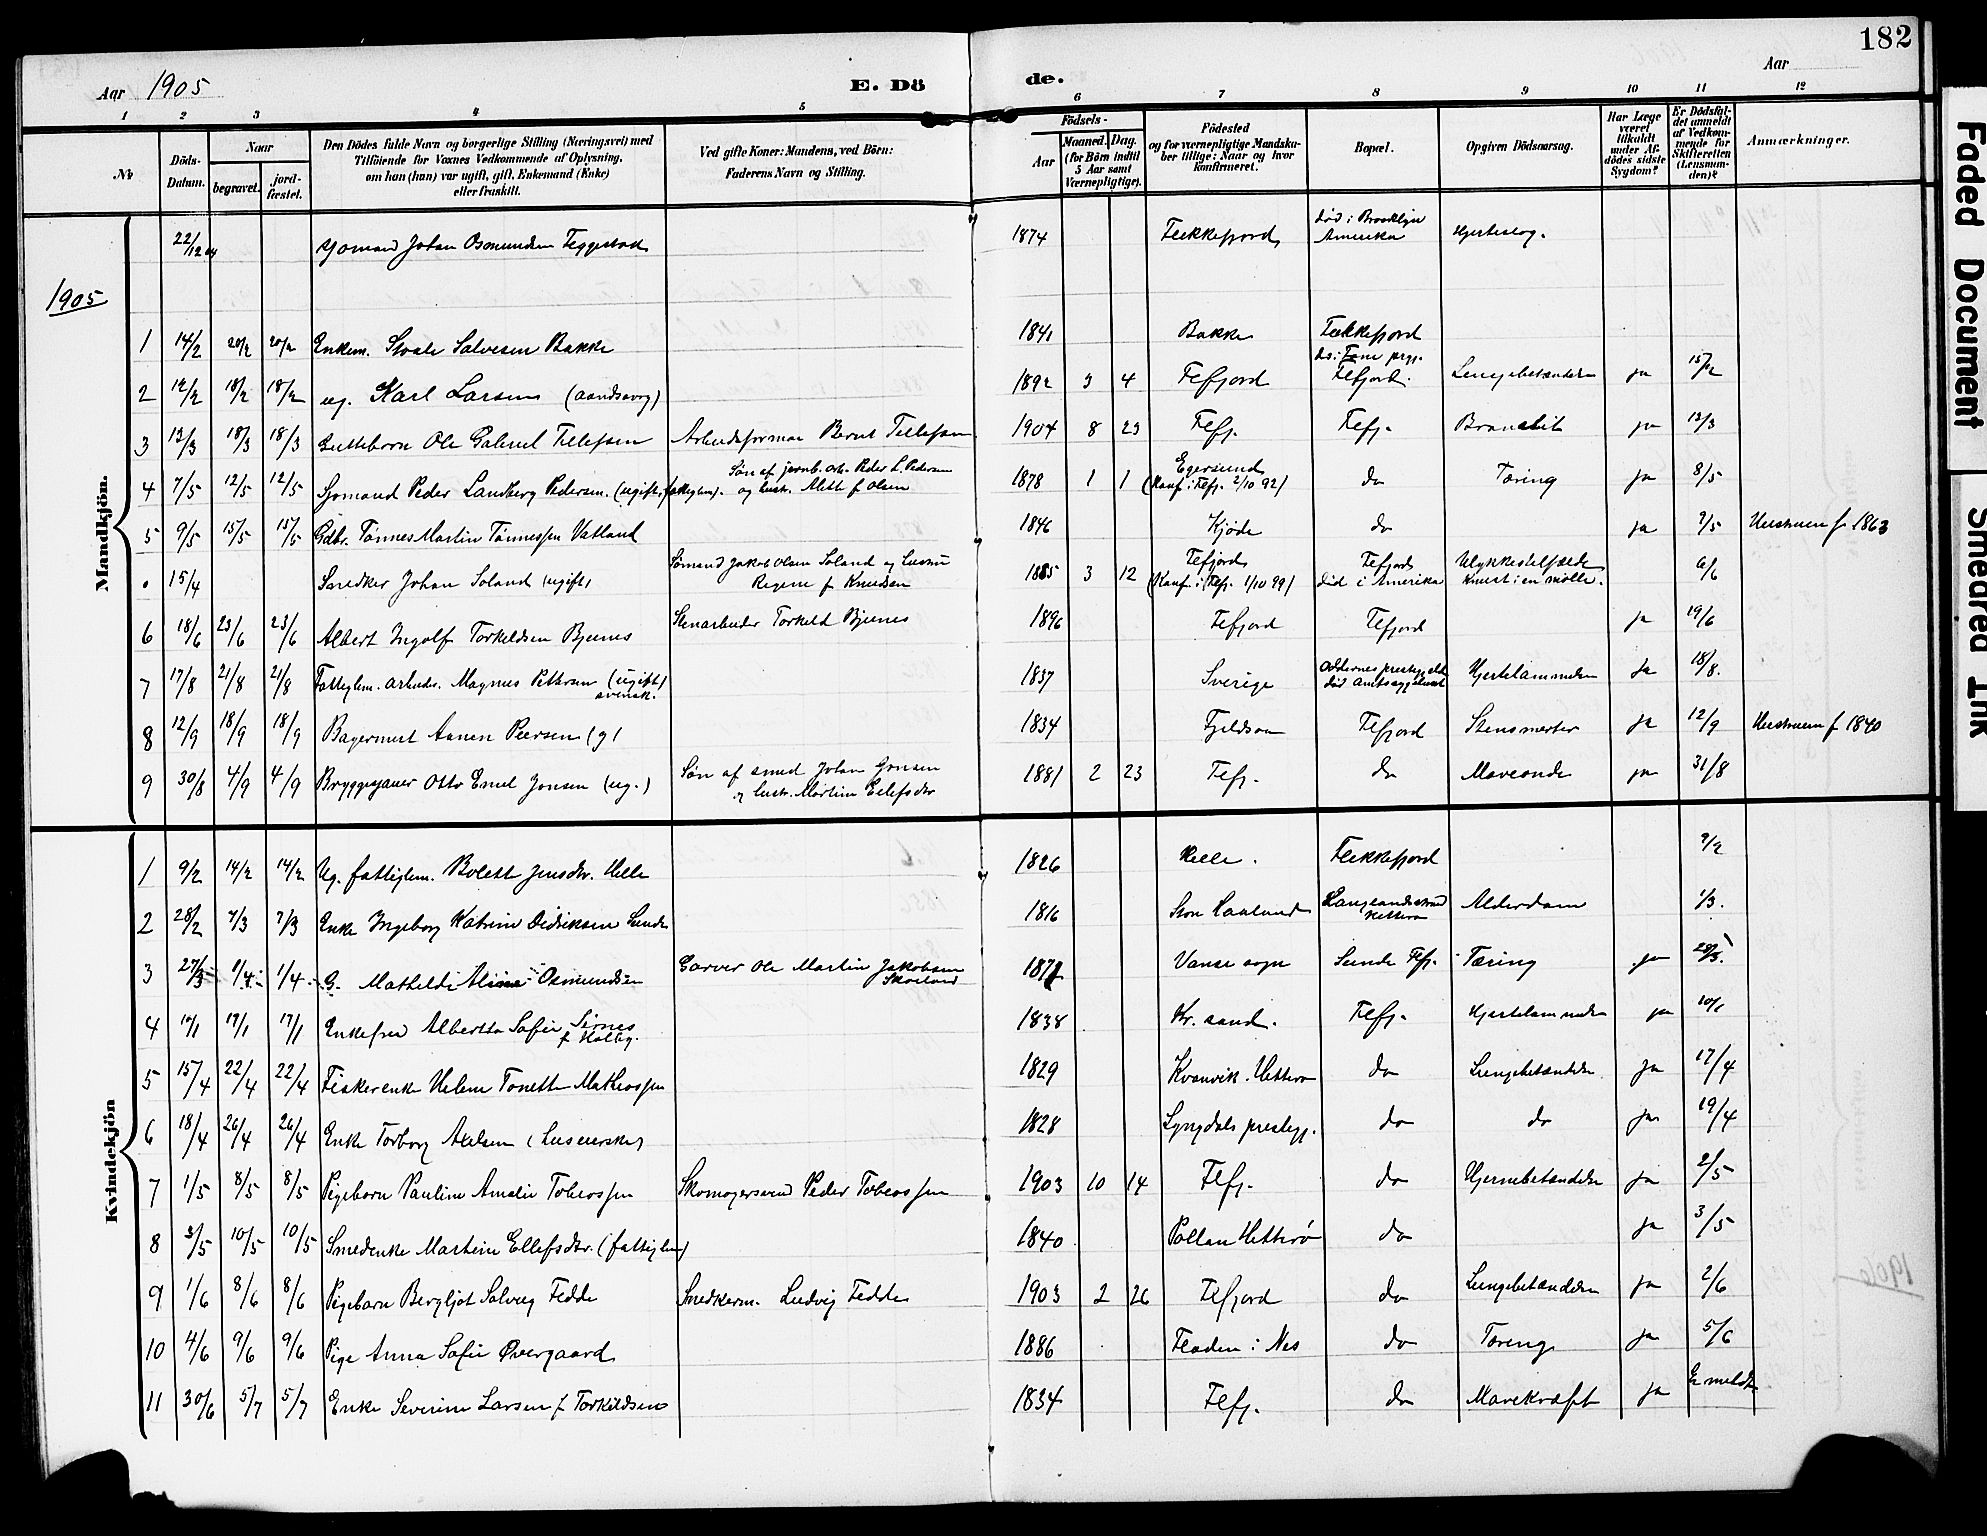 182
Aar 1905
E. Dö de.
Aar
1 2 3 4 5 6 7 8 9 10 11 12
No
Döds-Datum.
Naar
begravet.
jord-fæstet.
Den Dödes fulde Navn og borgerlige Stilling (Næringsvei) med
Tilföiende for Voxnes Vedkommende af Oplysning,
om han (hun) var ugift, gift, Enkemand (Enke)
eller fraskilt.
Ved gifte Koner: Mandens, ved Börn:
Faderens Navn og Stilling.
Födsels-
Aar
Maaned. Dag.
(for Börn indtil
5 Aar samt
Værnepligtige).
Födested
og for værnepligtige Mandska-
ber tillige: Naar og hvor
konfirmeret.
Bopæl.
Opgiven Dödsaarsag.
Har Læge
været
tilkaldt
under Af-
dödes sidste
Sygdom?
Er Dödsfal-
det anmeldt
af Vedkom-
mende for
Skifteretten
(Lensman-
den)?
Anmærkninger.
Mandkjön.
22/12 04 Sjomand Johan Osmundsen Teggestad 1874 Flekkefjord død i Brooklyn Amerika Hjerteslag.
1905
1 14/2 20/2 20/2 Enkem. Salvesen Bakke 1841 Bakke Flekkefjord
2 12/2 18/2 18/2 ug. Karl Larsen (aandssvag) 1892 3 4 Flfjord Flfjord. Lungebetændelse ja 15/2
3 13/3 18/3 18/3 Guttebarn Ole Gabriel Tellefsen Arbeidsforman Bernt Tellefsen 1904 8 23 Flfj. Flfj. ja 13/3
4 7/5 12/5 12/5 Sjomand Peder Landberg Pedersen. (ugift, fattiglem). Søn af jernb. arb. Peder L. Pedersen og hustr. f. Olsen 1878 1 1 Egersund (Konf. i Flfj. 2/10 92) do Tæring ja 8/5
5 9/5 15/5 15/5 Gdbr. Tønnes Martin Tønnessen Vatland 1846 Kjøde do ja 9/5 f. 1863
15/4 Snedker Johan Soland (ugift) Sømand Jakob Olsen Soland og hustru Regine f. Knudsen 1885 3 12 Flfjord (Konf. i Flfj. 1/10 99) Flfjord død i Amerika Ulykkestilfælde knust i en mølle. 6/6
6 18/6 23/6 23/6 Albert Ingolf Torkeldsen Bjunes Stenarbeider Torkeld Bjunes 1896 Flfjord Flfjord ja 19/6
7 17/8 21/8 21/8 Fattiglem. arbeider. Magnus Pettersen (ugift) svensk. 1837 Sverige død Amtssygehuset Hjertelammelse Ja 18/8.
8 12/9 18/9 18/9 Bagermest Aanen Peersen (g) 1834 Fjeldsaa Flfjord Stensmerter ja 12/9 f. 1840
9 30/8 4/9 4/9 Bryggesjauer Otto Emil Jonsen (ug.) Søn af smed Johan Jonsen og hustr. Martine Ellefsdtr 1881 2 23 Flfj. do Maveonde ja 31/8
Kvindekjön
1 9/2 14/2 14/2 Ug. fattiglem. Bolette Jensdtr. Helle 1826 Helle. Flekkefjord 9/2
2 28/2 7/3 7/3 Enke Ingeborg Katrine Didriksen Sunde 1816 Alderdom 1/3.
3 27/3 1/4 1/4 G. Mathilde Aline Osmundsen Garver Ole Martin Jakobsen 187 Vanse sogn Sunde Flfj. Tæring ja 28/3.
4 17/1 17/1 Enkefru Albertta Sofie Sirnes f. Kolby. 1838 Kr. sand. Flfj. Hjertelammelse ja 10/1
5 15/4 22/4 22/4 Fiskerenke Helene Tonette Mathiassen 1829 Kvanvik. Hitterø do Lungebetændelse. ja 17/4
6 18/4 26/4 26/4 Enke Torborg Axelsen 1828 Lyngdals prestegj. do do ja 19/4
7 1/5 8/5 8/5 Pigebarn Pauline Amalie Tobiassen Skomagersvend Peder Tobiassen 1903 10 14 Flfj. do Hjernebetændelse ja 2/5
8 3/5 10/5 10/5 Smedenke Martine Ellefsdtr. (fattiglem) 1840 Pollan Hitterø do ja 3/5
9 1/6 8/6 8/6 Pigebarn Bergljot Solveig Fedde Snedkerm. Ludvig Fedde 1903 2 26 Flfjord do Lungebetændelse ja 2/6
10 4/6 9/6 9/6 Pige Anna Sofie Øvergaard 1886 Fladen i Nes do Tæring ja 5/6
11 30/6 5/7 5/7 Enke Severine Larsen f. Torkildsen 1834 Flfj. do Mavekræft ja Er meldt
Faded Document
Smeared Ink